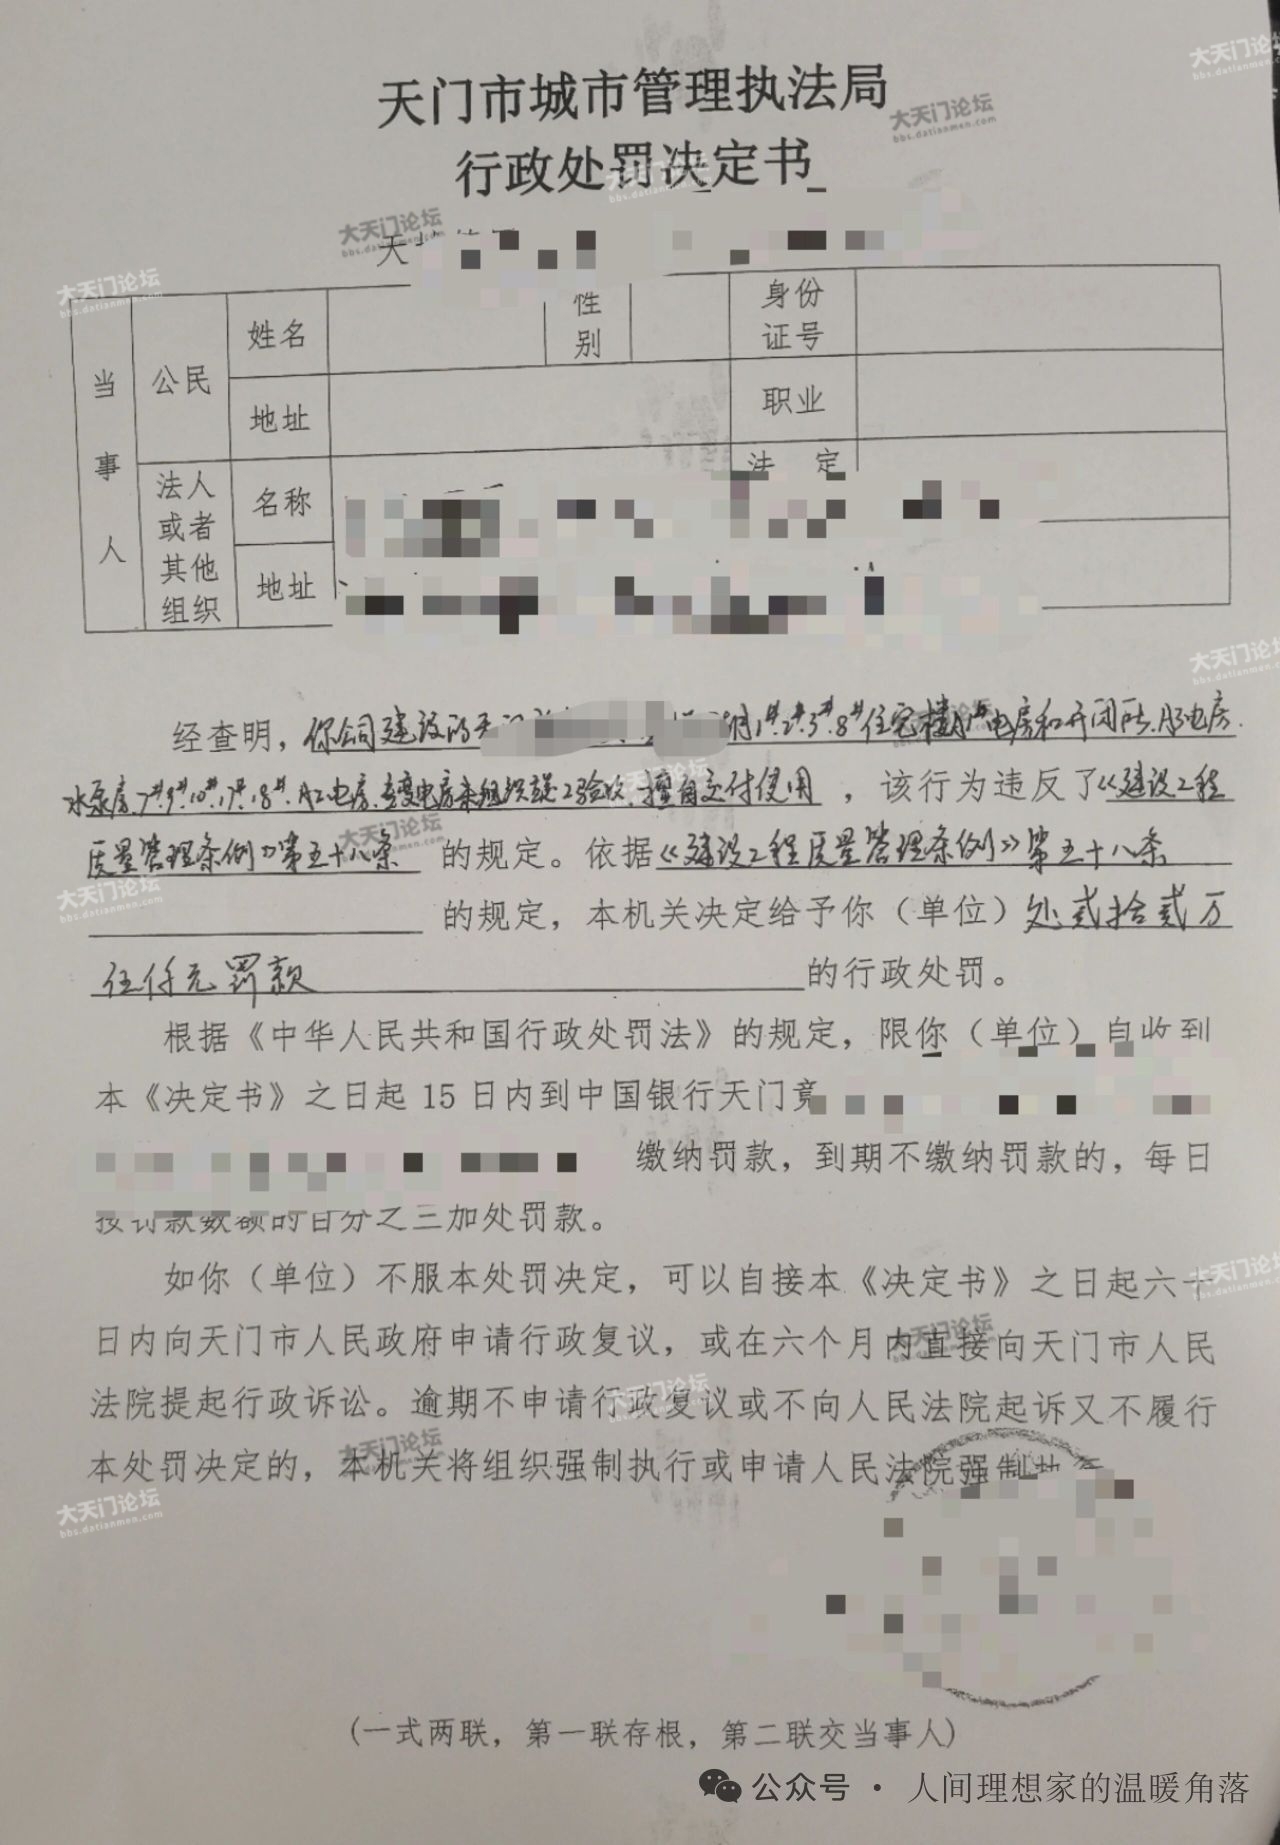 天门市城市管理执法局
行政处罚决定书
天
当事人
公民
姓名
性别
身份证号
地址
职业
法人或者其他组织
名称
法定
地址
经查明，你公司建设的天门 1#.2#.3#.8#住宅楼 电房和开闭所 电房.
水泵房.7#.9#.10#.17#.18# 电房.专变电房未组织竣工验收，擅自交付使用，该行为违反了《建设工程
质量管理条例》第五十八条的规定。依据《建设工程质量管理条例》第五十八条
的规定，本机关决定给予你（单位）处贰拾贰万
伍仟元罚款的行政处罚。
根据《中华人民共和国行政处罚法》的规定，限你（单位）自收到
本《决定书》之日起 15 日内到中国银行天门竟
缴纳罚款，到期不缴纳罚款的，每日
按罚款数额的百分之三加处罚款。
如你（单位）不服本处罚决定，可以自接本《决定书》之日起六十
日内向天门市人民政府申请行政复议，或在六个月内直接向天门市人民
法院提起行政诉讼。逾期不申请行政复议或不向人民法院起诉又不履行
本处罚决定的，本机关将组织强制执行或申请人民法院强制执
（一式两联，第一联存根，第二联交当事人）
公众号 · 人间理想家的温暖角落
大天门论坛
bbs.datianmen.com